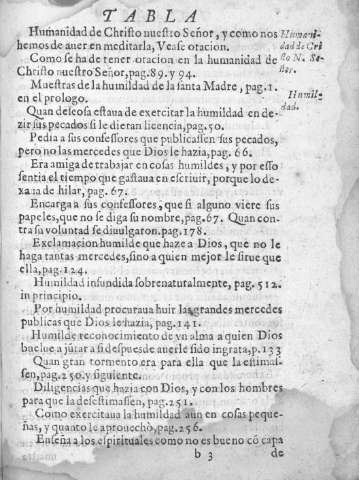 TABLA
Humanidad de Christo nuestro Señor, y como nos
hemos de auer en meditarla, Vease oracion.
Como se ha de tener oracion en la humanidad de
Christo nuestro Señor, pag. 89. y 94.
Muestras de la humildad de la santa Madre, pag. 1.
en el prologo.
Quan deseosa estaua de exercitar la humildad en de-
zir sus pecados si le dieran licencia, pag. 50.
Pedia a sus confessores que publicassen sus pecados,
pero no las mercedes que Dios le hazia, pag. 66.
Era amiga de trabajar en cosas humildes, y por esso
sentia el tiempo que gastaua en escriuir, porque lo de
xaua de hilar, pag. 67.
Encarga a sus confessores, que si alguno viere sus
papeles, que no se diga su nombre, pag. 67. Quan con-
tra su voluntad se diuulgaron. pag. 178.
Exclamacion humilde que haze a Dios, que no le
haga tantas mercedes, sino a quien mejor le sirue que
ella, pag. 124.
Humildad infundida sobrenaturalmente, pag. 512.
in principio.
Por humildad procuraua huir las grandes mercedes
publicas que Dios le hazia, pag. 141.
Humilde reconocimiento de vn alma a quien Dios
buelue a jútar a si despues de auerle sido ingrata, p. 133
Quan gran tormento era para ella que la estimas-
sen, pag. 250. y siguiente.
Diligencias que hazia con Dios, y con los hombres
para que la desestimassen, pag. 251.
Como exercitaua la humildad aun en cosas peque-
ñas, y quanto le aprouechò, pag. 256.
Enseña a los espirituales como no es bueno cõ capa
b 3 de
Humani-
dad de Cri
sto N. Se-
ñor.
Humil-
dad.